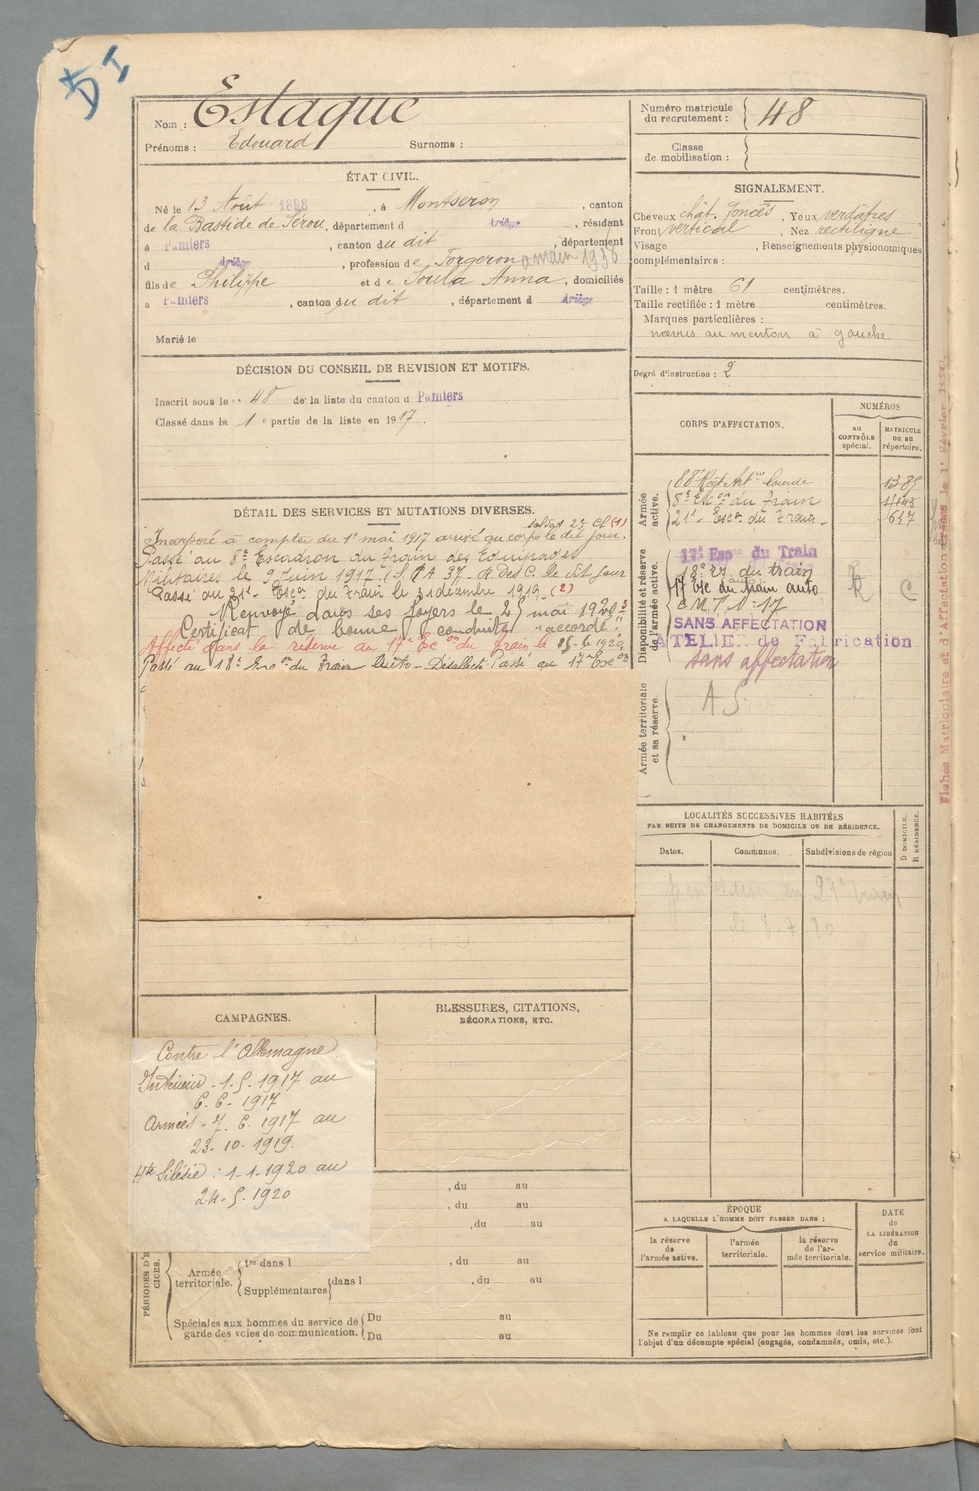 D I
Nom : Estaque
Prénoms : Edouard Surnoms :
ÉTAT CIVIL.
Né le 13 Août 1898, à Montseron, canton
de la Bastide de Sérou, département d Ariège, résidant
à Pamiers, canton du dit, département
d Ariège, profession de Forgeron
fils de Philippe et de Soula Anna, domiciliés
à Pamiers, canton du dit, département d Ariège
Marié le
DÉCISION DU CONSEIL DE REVISION ET MOTIFS.
Inscrit sous le n° 48 de la liste du canton d Pamiers
Classé dans la 1e partie de la liste en 1917.
DÉTAIL DES SERVICES ET MUTATIONS DIVERSES.
soldat 2e Cl (1)
Incorporé à compter du 1er mai 1917 arrivé au corps le dit jour.
Passé au 8e Escadron du train des Equipages
Militaires le 9 Juin 1917 le dit jour
Passé au 21e Escon du Train le 31 décembre 1919. (2)
Renvoyé dans ses foyers le 2 mai 1920
Certificat de bonne conduite "accordé".
Affecté dans la réserve au 17e Esc on du train le 25.6.1920
Passé au 18e Esc on du train Auto - Passé au 17e Esc on
CAMPAGNES.
Contre l'Allemagne
Intérieur - 1-5-1917 au
6-6-1917
Armées - 7.6.1917 au
23-10-1919.
Hte Silésie : 1-1-1920 au
24-5-1920
BLESSURES, CITATIONS,
DÉCORATIONS, ETC.
, du au
, du au
, du au
PÉRIODES D'E
CICES.
Armée
territoriale.
1re dans l , du au
Supplémentaires dans l , du au
Spéciales aux hommes du service de
garde des voies de communication.
Du au
Du au
Numéro matricule
du recrutement : 48
Classe
de mobilisation :
SIGNALEMENT.
Cheveux chât. foncés, Yeux verdatres
Front vertical, Nez rectiligne
Visage , Renseignements physionomiques
complémentaires :
Taille : 1 mètre 61 centimètres.
Taille rectifiée : 1 mètre centimètres.
Marques particulières :
nœvus au menton à gauche
Degré d'instruction : 2
CORPS D'AFFECTATION.
NUMÉROS
au
CONTRÔLE
spécial.
MATRICULE
OU AU
répertoire.
Armée
active.
88e Régt Artie lourde
8e Esc on du Train
21e Escon du Train 647
Disponibilité et réserve
de l'armée active.
17e Escon du Train
du train
17 Esc du train auto
SANS AFFECTATION
ATELIER de Fabrication
sans affectation
R C
Armée territoriale
et sa réserve.
A S
LOCALITÉS SUCCESSIVES HABITÉES
PAR SUITE DE CHANGEMENTS DE DOMICILE OU DE RÉSIDENCE.
Dates. Communes. Subdivisions de région
D DOMICILE.
R RÉSIDENCE.
ÉPOQUE
A LAQUELLE L'HOMME DOIT PASSER DANS :
la réserve
de
l'armée active.
l'armée
territoriale.
la réserve
de l'ar-
mée territoriale.
DATE
de
LA LIBÉRATION
du
service militaire.
Ne remplir ce tableau que pour les hommes dont les services font
l'objet d'un décompte spécial (engagés, condamnés, omis, etc.).